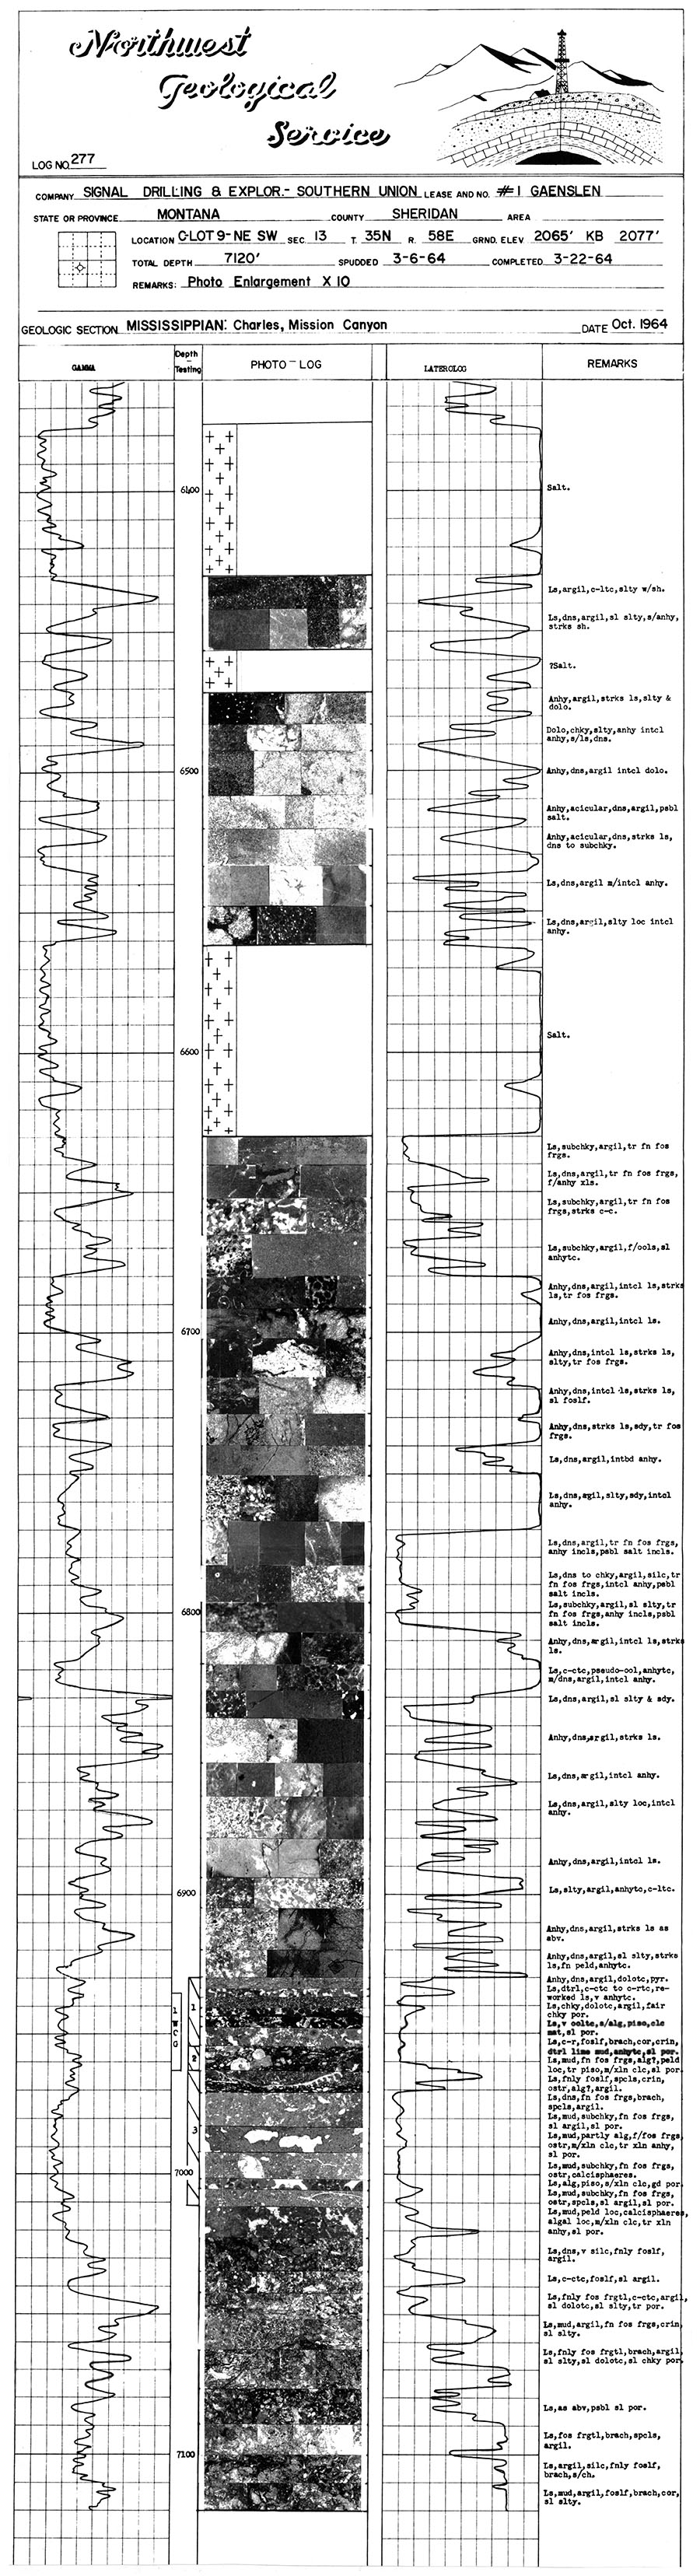 Northwest
Geological
Service
LOG NO. 277
COMPANY SIGNAL DRILLING & EXPLOR.- SOUTHERN UNION LEASE AND NO. #1 GAENSLEN
STATE OR PROVINCE MONTANA COUNTY SHERIDAN AREA
LOCATION C-LOT 9-NE SW SEC. 13 T. 35N R. 58E GRND. ELEV 2065' KB 2077'
TOTAL DEPTH 7120' SPUDDED 3-6-64 COMPLETED 3-22-64
REMARKS: Photo Enlargement X 10
GEOLOGIC SECTION MISSISSIPPIAN: Charles, Mission Canyon DATE Oct. 1964
GAMMA Depth - Testing PHOTO - LOG LATEROLOG REMARKS
6400
Salt.
Ls,argil,c-ltc,slty w/sh.
Ls,dns,argil,sl slty,s/anhy,
strks sh.
?Salt.
Anhy,argil,strks ls,slty &
dolo.
Dolo,chky,slty,anhy intcl
anhy,s/ls,dns.
6500
Anhy,dns,argil intcl dolo.
Anhy,acicular,dns,argil,psbl
salt.
Anhy,acicular,dns,strks ls,
dns to subchky.
Ls,dns,argil m/intcl anhy.
Ls,dns,argil,slty loc intcl
anhy.
Salt.
6600
Ls,subchky,argil,tr fn fos
frgs.
Ls,dns,argil,tr fn fos frgs,
f/anhy xls.
Ls,subchky,argil,tr fn fos
frgs,strks c-c.
Ls,subchky,argil,f/ools,sl
anhytc.
Anhy,dns,argil,intcl ls,strks
ls,tr fos frgs.
Anhy,dns,argil,intcl ls.
6700
Anhy,dns,intcl ls,strks ls,
slty,tr fos frgs.
Anhy,dns,intcl ls,strks ls,
sl foslf.
Anhy,dns,strks ls,sdy,tr fos
frgs.
Ls,dns,argil,intbd anhy.
Ls,dns,agil,slty,sdy,intcl
anhy.
Ls,dns,argil,tr fn fos frgs,
anhy incls,psbl salt incls.
Ls,dns to chky,argil,silc,tr
fn fos frgs,intcl anhy,psbl
salt incls.
6800
Ls,subchky,argil,sl slty,tr
fn fos frgs,anhy incls,psbl
salt incls.
Anhy,dns,argil,intcl ls,strks
ls.
Ls,c-ctc,pseudo-ool,anhytc,
m/dns,argil,intcl anhy.
Ls,dns,argil,sl slty & sdy.
Anhy,dns,argil,strks ls.
Ls,dns,argil,intcl anhy.
Ls,dns,argil,slty loc,intcl
anhy.
Anhy,dns,argil,intcl ls.
6900
Ls,slty,argil,anhytc,c-ltc.
Anhy,dns,argil,strks ls as
abv.
Anhy,dns,argil,sl slty,strks
ls,fn peld,anhytc.
Anhy,dns,argil,dolotc,pyr.
Ls,dtrl,c-ctc to c-rtc,re-
worked ls,v anhytc.
1
W
C
G
1
Ls,chky,dolotc,argil,fair
chky por.
Ls,v ooltc,s/alg,piso,clc
mat,sl por.
Ls,c-r,foslf,brach,cor,crin,
dtrl lime mud,anhytc,sl por.
2
Ls,mud,fn fos frgs,alg?,peld
loc,tr piso,m/xln clc,sl por.
Ls,fnly foslf,spcls,crin,
ostr,alg?,argil.
Ls,dns,fn fos frgs,brach,
spcls,argil.
Ls,mud,subchky,fn fos frgs,
sl argil,sl por.
3
Ls,mud,partly alg,f/fos frgs,
ostr,m/xln clc,tr xln anhy,
sl por.
7000
Ls,mud,subchky,fn fos frgs,
ostr,calcisphaeres.
Ls,alg,piso,s/xln clc,gd por.
Ls,mud,subchky,fn fos frgs,
ostr,spcls,sl argil,sl por.
Ls,mud,peld loc,calcisphaeres,
algal loc,m/xln clc,tr xln
anhy,sl por.
Ls,dns,v silc,fnly foslf,
argil.
Ls,c-ctc,foslf,sl argil.
Ls,fnly fos frgtl,c-ctc,argil,
sl dolotc,sl slty,tr por.
Ls,mud,argil,fn fos frgs,crin,
sl slty.
Ls,fnly fos frgtl,brach,argil,
sl slty,sl dolotc,sl chky por.
Ls,as abv,psbl sl por.
Ls,fos frgtl,brach,spcls,
argil.
7100
Ls,argil,silc,fnly foslf,
brach,s/ch.
Ls,mud,argil,foslf,brach,cor,
sl slty.